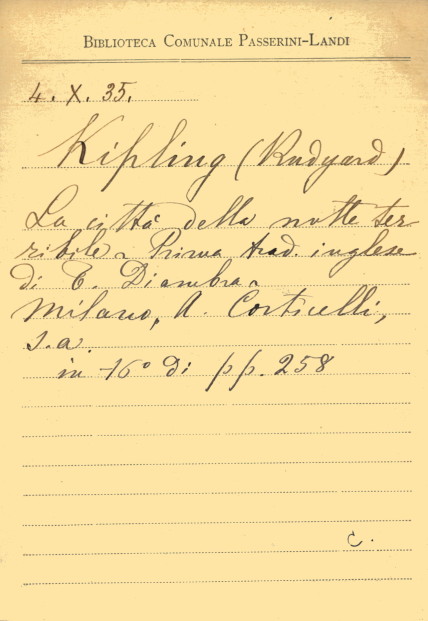 BIBLIOTECA COMUNALE PASSERINI-LANDI
4. X. 35.
Kipling (Rudyard)
La città della notte ter-
ribile - Prima trad. inglese
di E. Diambra -
Milano, A. Corticelli,
s.a.
in 16° di pp. 258
C.